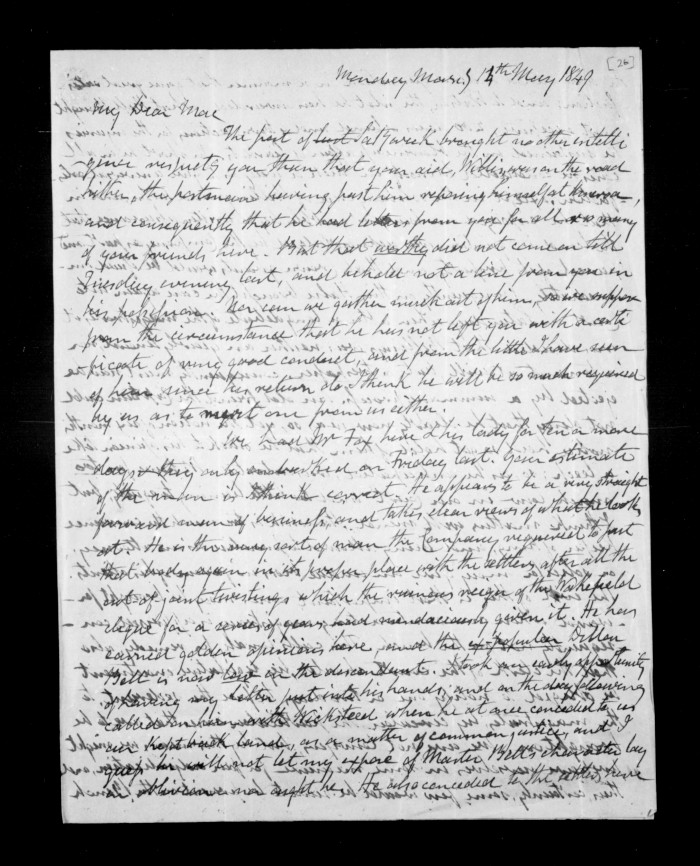 [26]
Monday 14th May 1849
My Dear Mac
The past of last week brought no other intelli
-gence respectg you than that you and, Willis was on the road
hither, the postman having past him refreshing himself at
and consequently that he had letters from you for all & so many
of your friends here. But that worthy did not come on till
Tuesday evening last, and behold not a line from you in
his possession. Nor can we gather much out of him, so we suppose
from the circumstance that he has not left you with a certi
ficate of very good conduct, and from the little I have seen
of him since his return do I think he will be so much required
by us as to merit one from us either.
We had Mr Fox here & his lady for ten or more
days they only on Friday last. Your estimate
of the man is I think correct. He appears to be a very straight
forward man of business, and takes clear views of what he looks
at. He is the very sort of man the Company required to put
that body again in its proper place with the settlers after all the
out of joint twistings which the ruinous reign of the Wakefield
clique for a series of years had given it. He has
earned golden opinions here, and the Dillon
Bell is now on the descendant. I took an early opportunity
of having my letter put into his hands, and on the day following
called on him with Wicksteed when he at once conceded to us
our kept back lands, as a matter of common justice, and I
guess he will not let my expose of Master Bell's character lay
in oblivion nor ought he. He also conceded to the settlers here